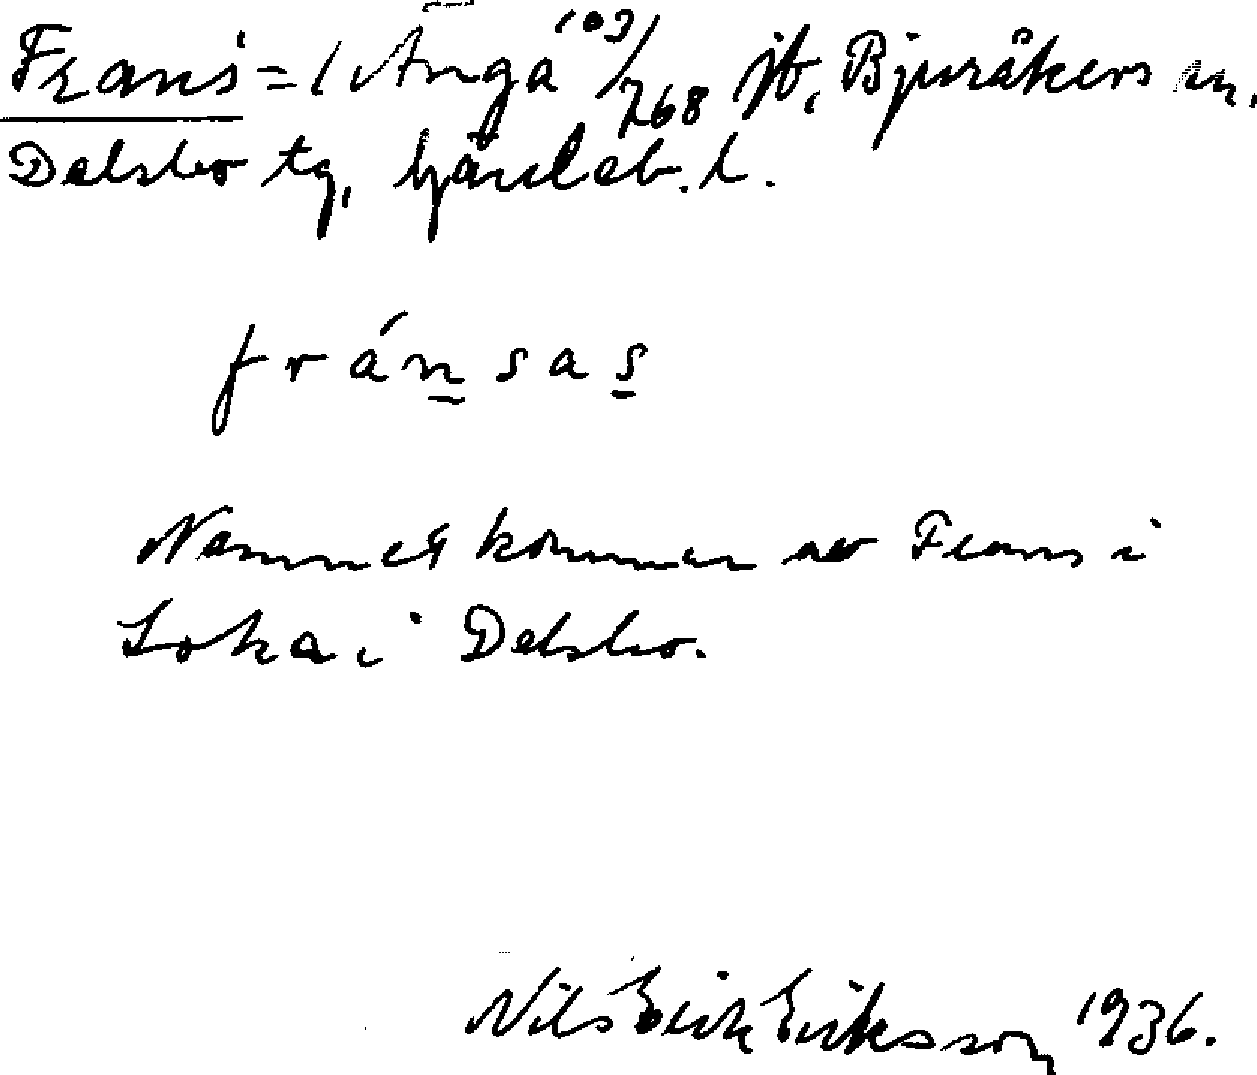 Frans = 1 Änga 103/268 jb, Bjuråkers sn.
Delsbo tg, Gävleb. l.
fránsas
Namnet kommer av Frans i
Loka i Delsbo.
Nils Erik Eriksson 1936.